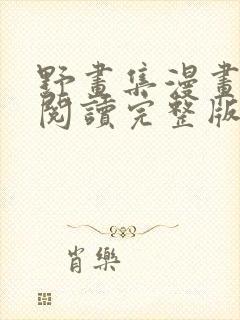 野畫集漫畫
閱讀完整版
肖樂